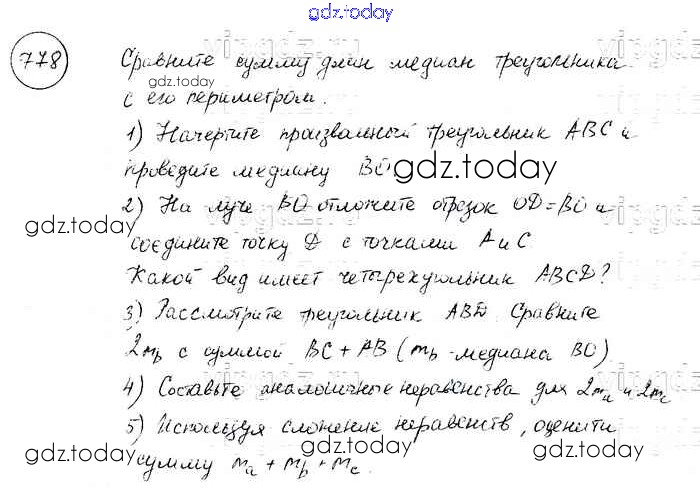 gdz.today
778
Сравните сумму длин медиан треугольника
gdz.today
с его периметром.
1) Начертите произвольный треугольник ABC и
проведите медиану BO
gdz.today
2) На луче BO отложите отрезок OD=BO и
gdz.today
соедините точку D с точками A и C.
Какой вид имеет четырехугольник ABCD?
3) Рассмотрите треугольник ABD. Сравните
2mb с суммой BC + AB (mb - медиана BO)
4) Составьте аналогичные неравенства для 2ma и 2mc
gdz.today
5) Используя сложение неравенств, оцените
gdz.today
gdz.today
сумму ma + mb + mc.